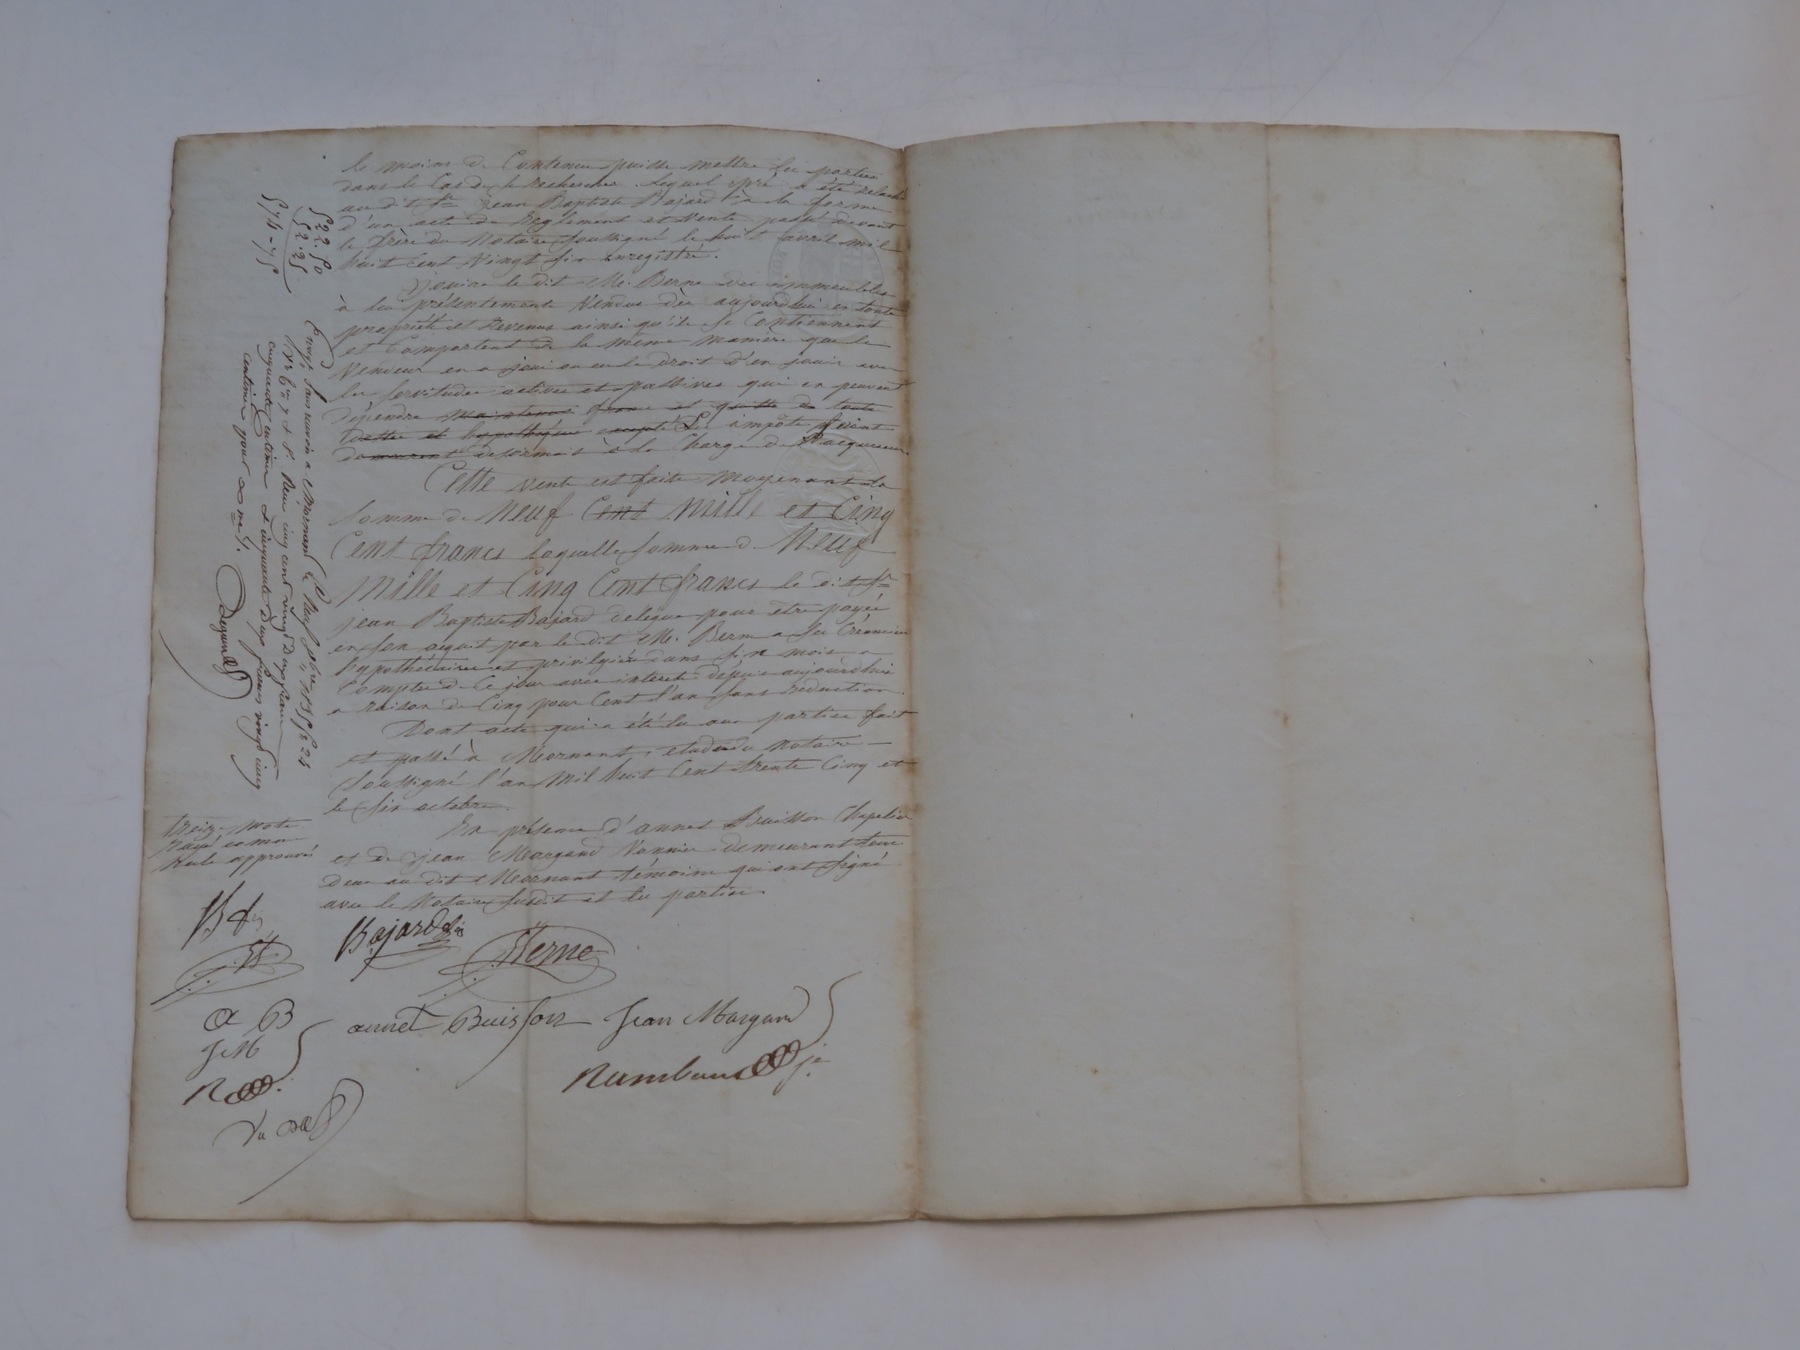 le moins de Contenu puisse mettre les parties
dans le Cas de le rechercher lequel pré a été relaché
au dit Sr. Jean Baptiste Bajard à la forme
d'un acte de Règlement et Vente passé devant
le frère du Notaire soussigné le huit avril mil
huit Cent Vingt six enregistré.
Jouira le dit Me. Berne des immeubles
à lui présentement Vendus dès aujourdhui en toute
propriété et Revenus ainsi qu'ils se Contiennent
et Comportent de la même manière que le
Vendeur en a joui ou eu le droit d'en jouir avec
les servitudes actives et passives qui en peuvent
dépendre maintenus franc et quitte de toute
dette et hypothèque excepté Les impôts seront
demeurent désormais à la Charge de l'acquéreur
Cette vente est faite moyenant la
Somme de Neuf Cent Mille et Cinq
Cent francs laquelle somme de Neuf
Mille et Cinq Cent francs le dit Sr.
jean Baptiste Bajard delègue pour être payée
en son acquit par le dit Me. Berne a ses Créanciers
hypothécaires et privilégiés dans six mois a
Compter de Ce jour avec intérêts depuis aujourdhui
a raison de Cinq pour Cent l'an sans réduction.
Dont acte qui a été lu aux parties fait
et passé à Mornant, etude du Notaire
soussigné l'an Mil huit Cent trente Cinq et
le six octobre.
En présence d'annet Buisson Chapelier
et de jean Margand Vannier demeurant tous
deux au dit Mornant témoins qui ont signé
avec le Notaire susdit et les parties.
Bajard
Berne
annet Buisson Jean Margand
522.50
52.25
574-75
Enregt. sans renvoi a Mornant Le Neuf 8bre 1835 f 24
Reçu cinq cent vingt deux francs
cinquante centimes et cinquante deux francs vingt cinq
centimes pour
treize mots
rayés comme
Nuls approuvés
A B
J M